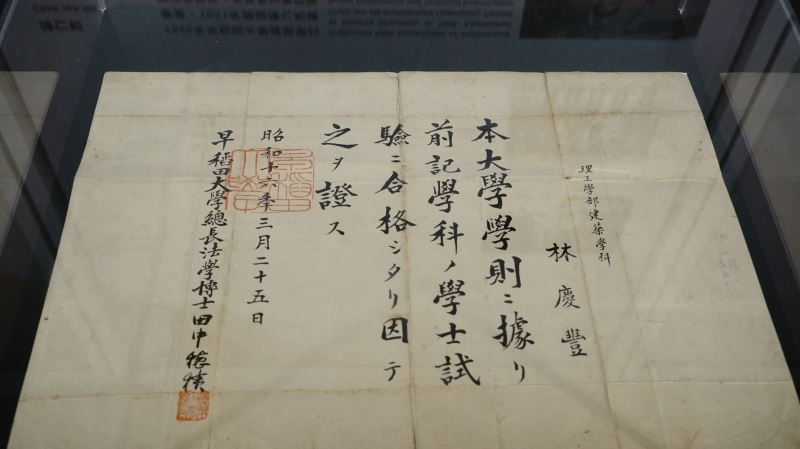 理工學部建築學科
林慶豐
本大學學則ニ據リ
前記學科ノ學士試
驗ニ合格シタリ因テ
之ヲ證ス
昭和十六年三月二十五日
早稲田大学總長法學博士田中穂積